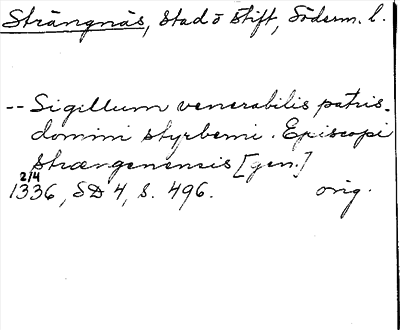 Strängnäs, stad o stift, Söderm. l.
-- Sigillum venerabilis patris.
domini styrbemi. Episcopi
strængenensis [gen.]
2/4
1336, SD 4, s. 496. orig.